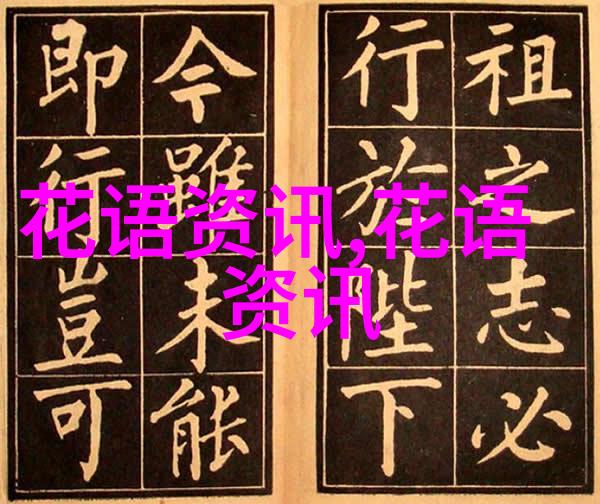 祖之志必
行於陛下
今雖未能
即行豈可
花语资讯,花语
资讯